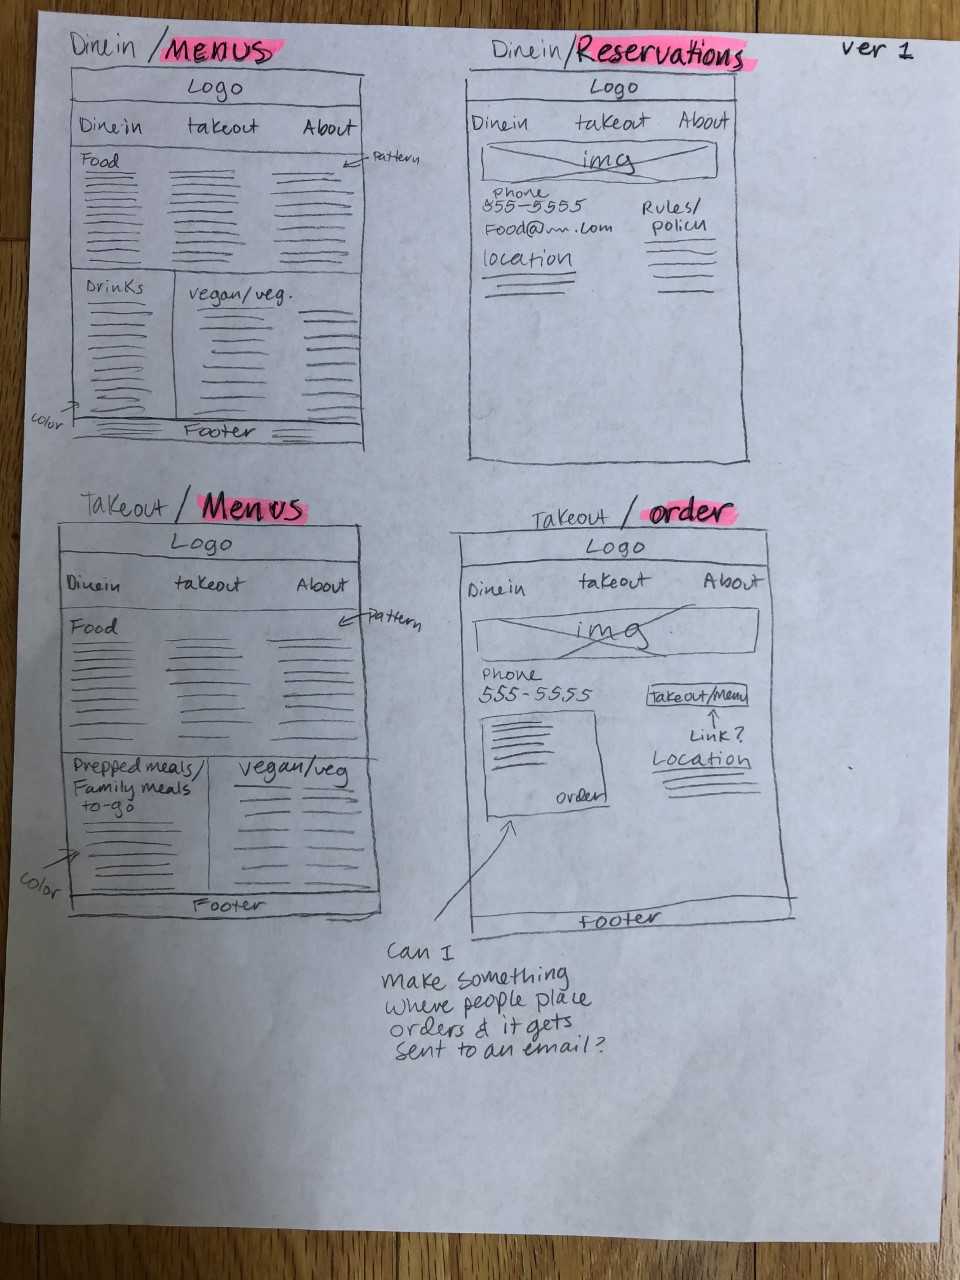 Dinein / Menus
Logo
Dinein takeout About
Food
Pattern
Drinks
vegan/veg.
color
Footer
Dinein / Reservations
ver 1
Logo
Dinein takeout About
img
Phone
555-5555
Food@ .com
location
Rules/
policy
Takeout / Menus
Logo
Dinein takeout About
Food
Pattern
Prepped meals/
Family meals
to-go
vegan/veg
color
Footer
Takeout / order
Logo
Dinein takeout About
img
Phone
555-5555
takeout/menu
Link?
Location
order
Footer
Can I
make something
where people place
orders & it gets
sent to an email?